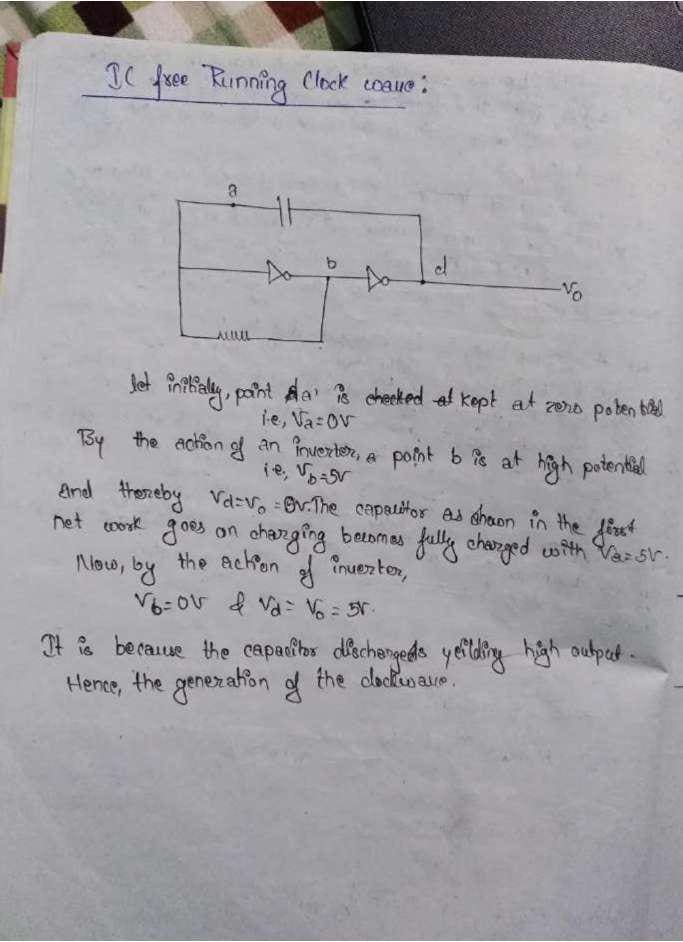 IC free Running Clock wave :
a
b
d
Vo
let initially, point 'a' is checked at kept at zero potential
i.e, Va = 0V
By the action of an inverter, a point b is at high potential
i.e, Vb = 5V
And thereby Vd = Vo = 0V. The capacitor as shown in the first
net work goes on charging becomes fully charged with Va = 5V.
Now, by the action of inverter,
Vb = 0V & Vd = Vo = 5V.
It is because the capacitor dischargeds yeilding high output.
Hence, the generation of the clockwave.